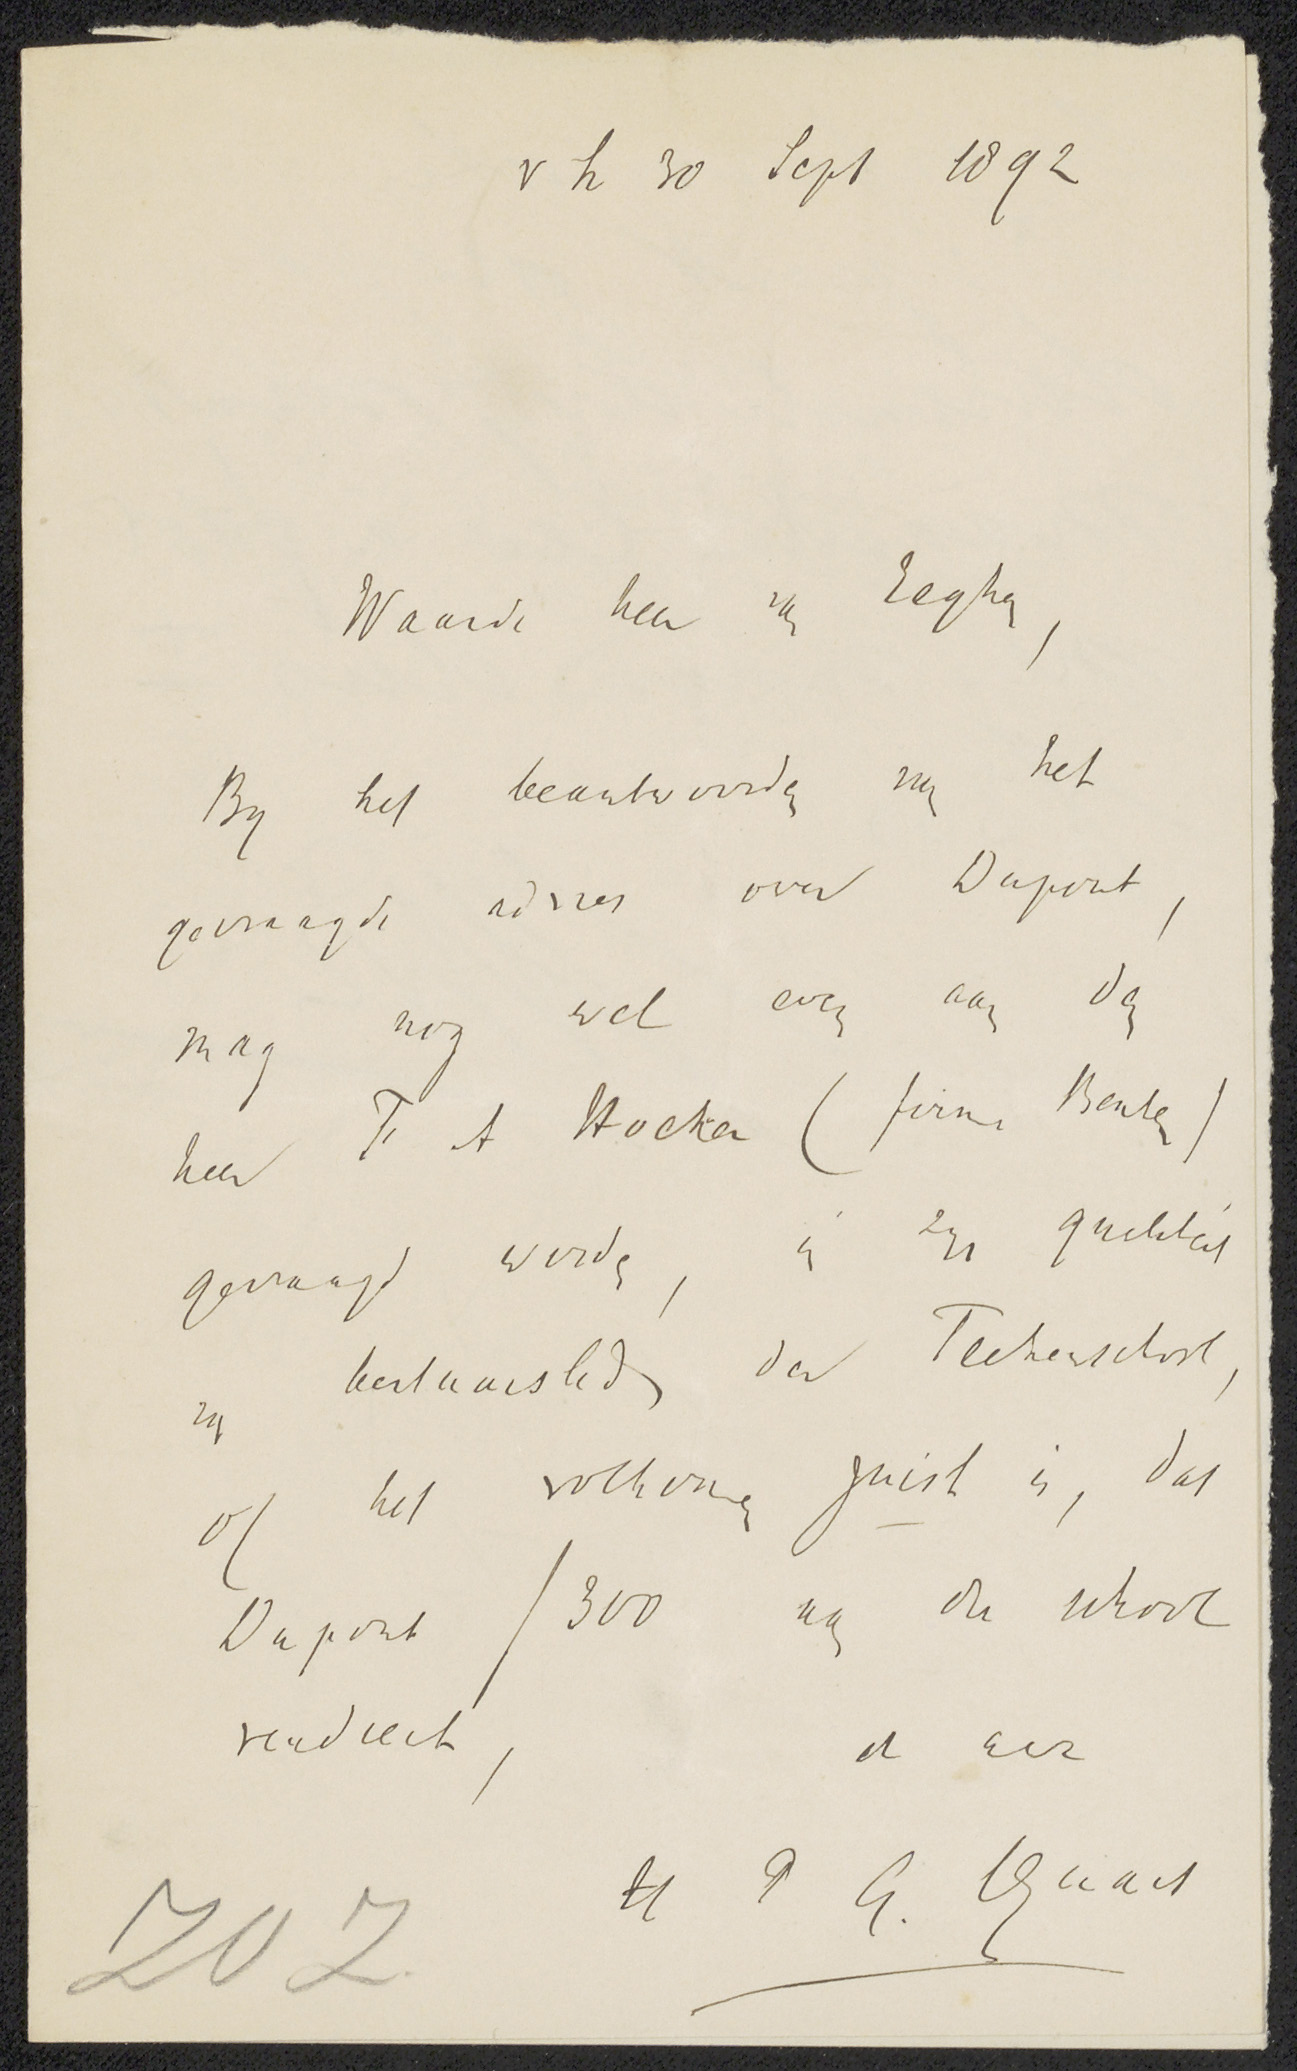 v h 30 Sept 1892
Waarde heer van Eeghen,
By het beantwoorden van het
gevraagde adres over Dupont,
mag nog wel even aan den
heer T A Hoeker (firma Benten)
gevraagd worden, in zyn qualiteit
van bestuurslid der Teekenschool,
of het volkomen juist is, dat
Dupont f 300 van die school
rendeert,
H P G Quack
202